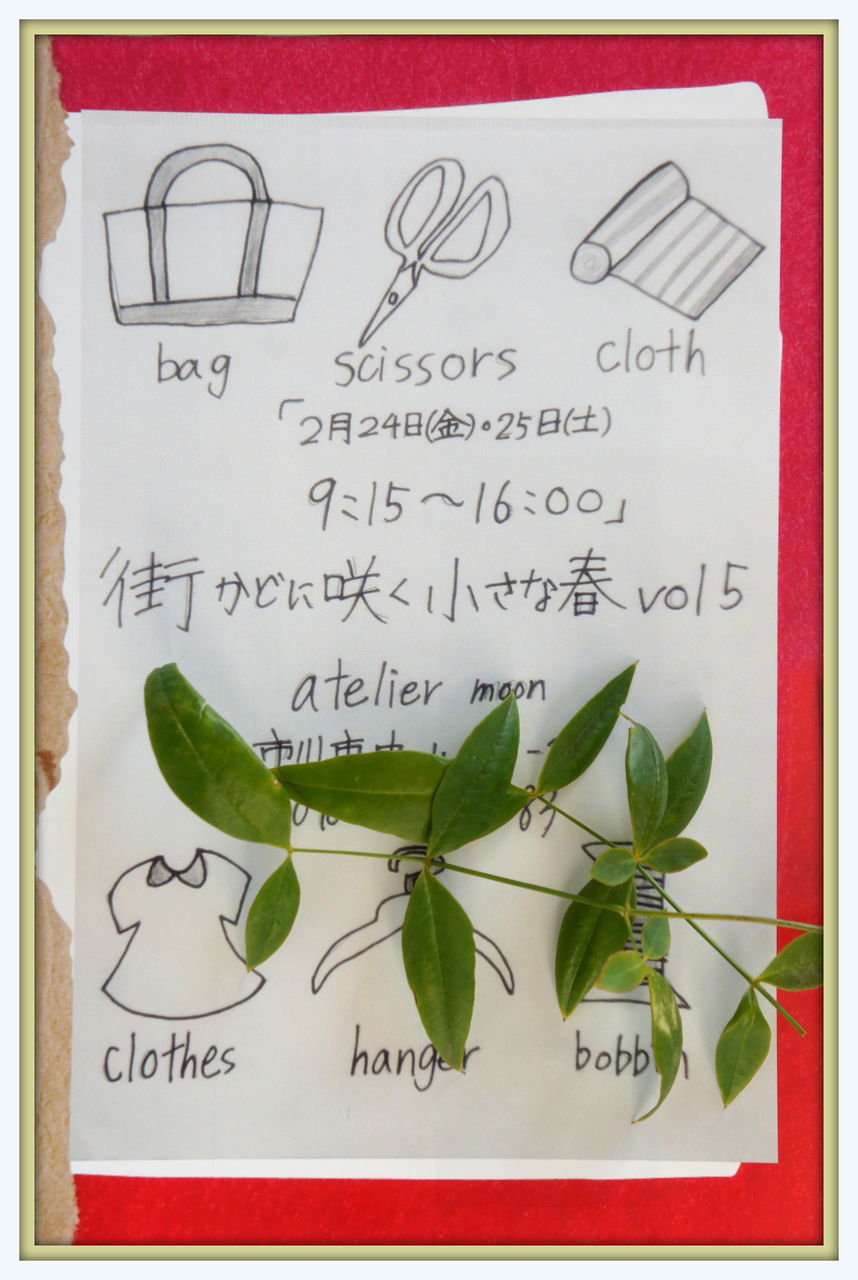 bag scissors cloth
「2月24日(金)。25日(土)
9:15〜16:00」
街かどに咲く小さな春 vol 5
atelier moon
市川市
clothes hanger bobbin